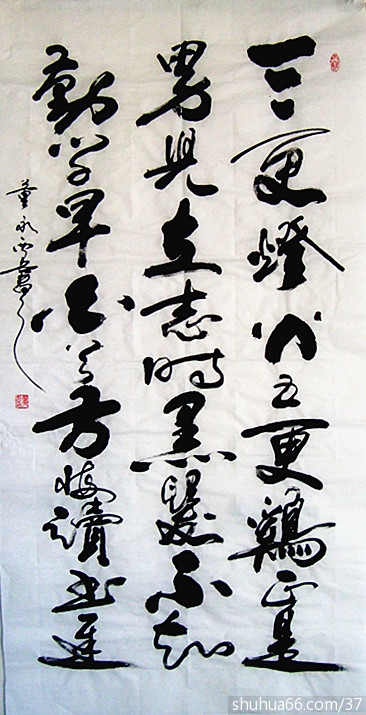 三更燈火五更鷄正是
男兒立志時黑髮不知
勤學早白首方悔讀書遲
董永書
shuhua66.com/37